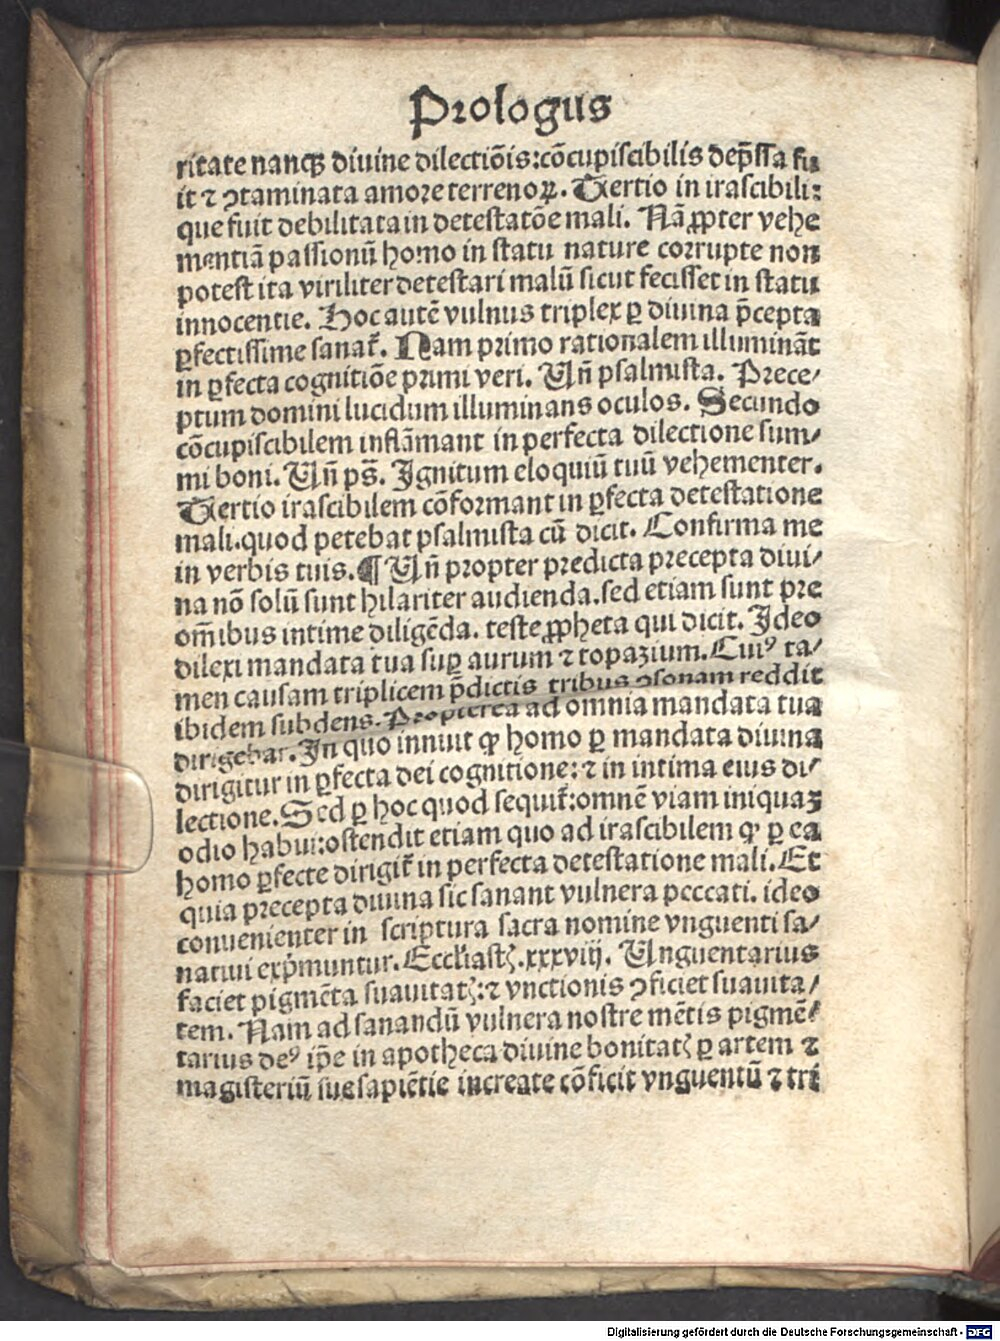 Prologus
ritate nanqꝫ diuine dilectiōis:cōcupiscibilis dep̄ssa fu
it ⁊ ꝯtaminata amore terrenoꝝ. Tertio in irascibili:
que fuit debilitata in detestatōe mali. Nā ꝓpter vehe
mentiā passionū homo in statu nature corrupte non
potest ita viriliter detestari malū sicut fecisset in statu
innocentie. Hoc autē vulnus triplex ꝑ diuina p̄cepta
ꝑfectissime sanat̄. Nam primo rationalem illumināt
in ꝑfecta cognitiōe primi veri. Vn̄ psalmista. Prece⸗
ptum domini lucidum illuminans oculos. Secundo
cōcupiscibilem inflāmant in perfecta dilectione sum⸗
mi boni. Vn̄ ps̄. Ignitum eloquiū tuū vehementer.
Tertio irascibilem cōformant in ꝑfecta detestatione
mali.quod petebat psalmista cū dicit. Confirma me
in verbis tuis.¶ Vn̄ propter predicta precepta diui⸗
na nō solū sunt hilariter audienda.sed etiam sunt pre
om̄ibus intime diligēda. teste ꝓpheta qui dicit. Ideo
dilexi mandata tua suꝑ aurum ⁊ topazium.Cuiꝰ ta⸗
men causam triplicem p̄dictis tribus ꝯsonam reddit
ibidem subdens. Propterea ad omnia mandata tua
dirigebar.In quo innuit ꝙ homo ꝑ mandata diuina
dirigitur in ꝑfecta dei cognitione: ⁊ in intima eius di⸗
lectione.Sed ꝑ hoc quod sequit̄:omnē viam iniquaꝫ
odio habui:ostendit etiam quo ad irascibilem ꝙ ꝑ ea
homo ꝑfecte dirigit̄ in perfecta detestatione mali.Et
quia precepta diuina sic sanant vulnera peccati. ideo
conuenienter in scriptura sacra nomine vnguenti sa⸗
natiui exp̄muntur.Eccl̄iastꝭ.xxxviij. Vnguentarius
faciet pigmēta suauitatꝭ:⁊ vnctionis ꝯficiet suauita⸗
tem. Nam ad sanandū vulnera nostre mētis pigmē⸗
tarius deꝰ ip̄e in apotheca diuine bonitatꝭ ꝑ artem ⁊
magisteriū sue sapiētie increate cōficit vnguentū ⁊ tri
Digitalisierung gefördert durch die Deutsche Forschungsgemeinschaft - DFG